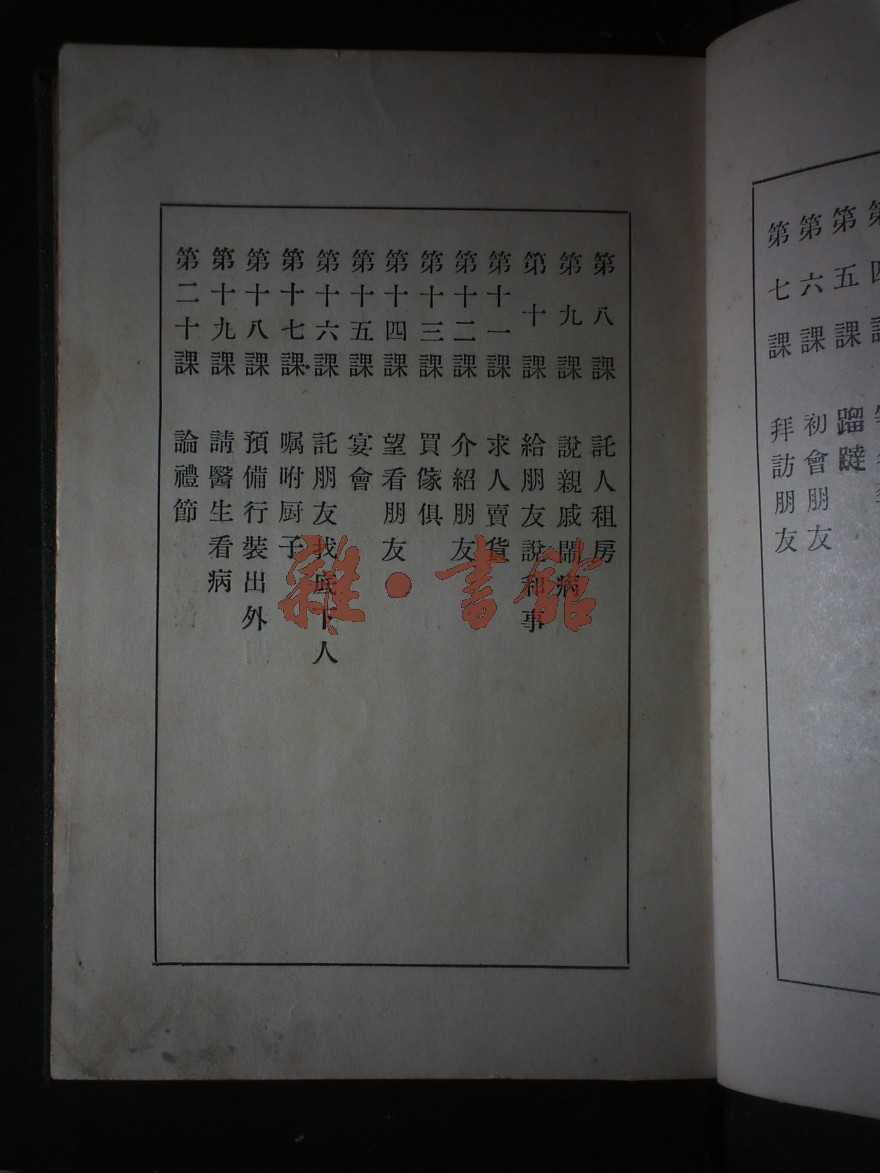 第四課
第五課 蹓躂
第六課 初會朋友
第七課 拜訪朋友
第八課 託人租房
第九課 說親戚鬧病
第十課 給朋友說和事
第十一課 求人賣貨
第十二課 介紹朋友
第十三課 買傢俱
第十四課 望看朋友
第十五課 宴會
第十六課 託朋友找底下人
第十七課 嘱咐厨子
第十八課 預備行裝出外
第十九課 請醫生看病
第二十課 論禮節
雜·書館